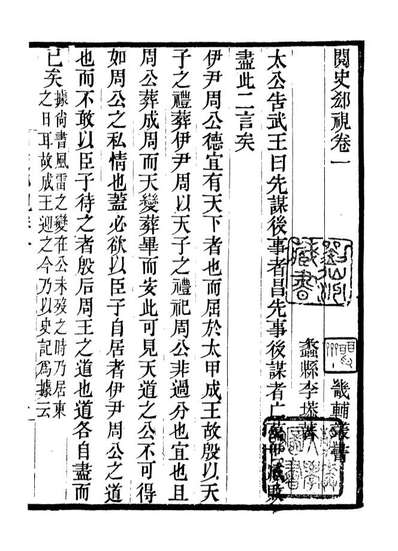 閱史郄視卷一
畿輔叢書
蠡縣李塨著
太公告武王曰先謀後事者昌先事後謀者亡成敗
盡此二言矣
伊尹周公德宜有天下者也而屈於太甲成王故殷以天
子之禮葬伊尹周以天子之禮祀周公非過分也宜也且
周公葬成周而天變葬畢而安此可見天道之公不可得
如周公之私情也蓋必欲以臣子自居者伊尹周公之道
也而不敢以臣子待之者殷后周王之道也道各自盡而
已矣
據尚書風雷之變在公未歿之時乃居東
之日耳故成王迎之今乃以史記爲據云